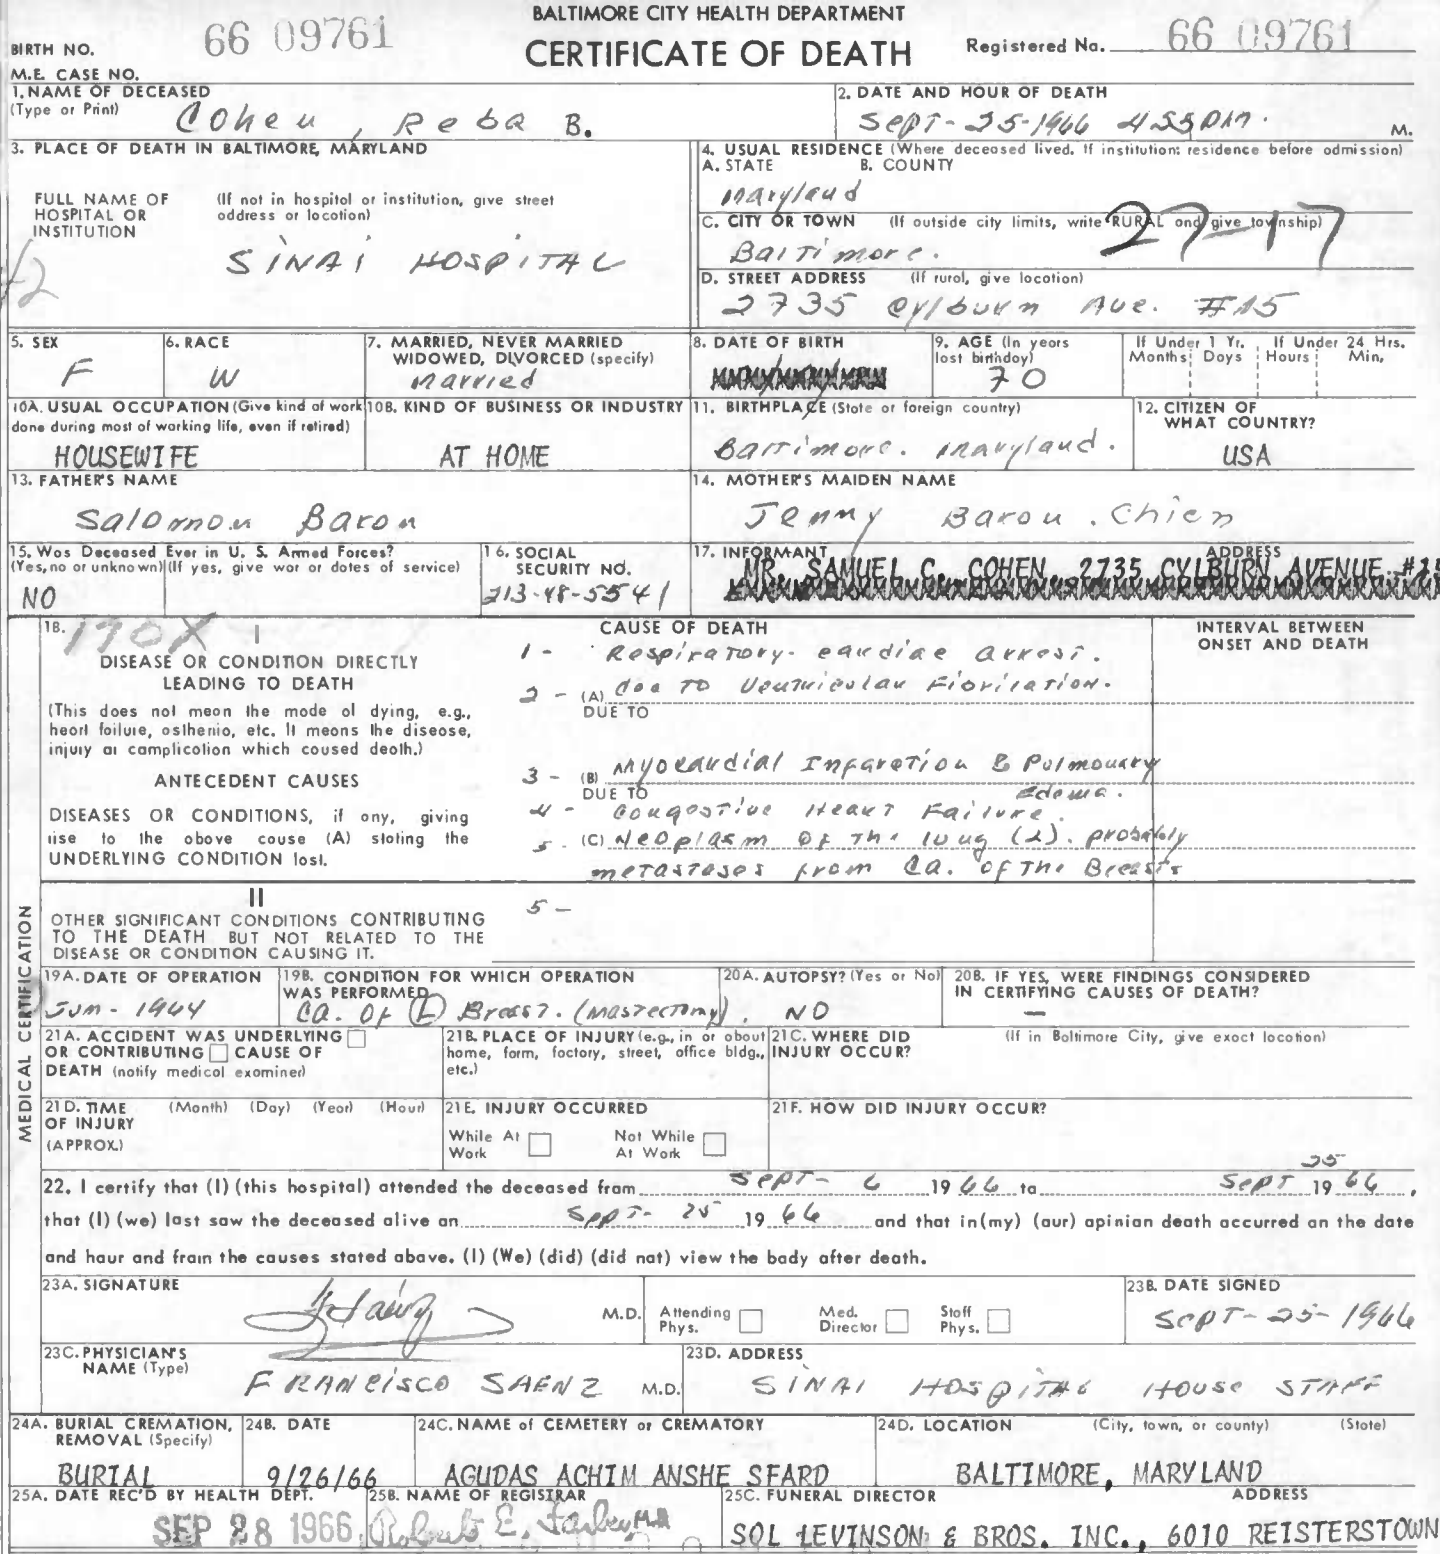 BALTIMORE CITY HEALTH DEPARTMENT
BIRTH NO. 66 09761 CERTIFICATE OF DEATH Registered No. 66 09761
M.E. CASE NO.
1. NAME OF DECEASED
(Type or Print) Cohen, Reba B.
2. DATE AND HOUR OF DEATH
Sept-25-1966 455 PM. M.
3. PLACE OF DEATH IN BALTIMORE, MARYLAND
FULL NAME OF HOSPITAL OR INSTITUTION
(If not in hospital or institution, give street address or location)
SINAI HOSPITAL
4. USUAL RESIDENCE (Where deceased lived. If institution: residence before admission)
A. STATE B. COUNTY
Maryland
C. CITY OR TOWN (If outside city limits, write RURAL and give township)
Baltimore. 27-17
D. STREET ADDRESS (If rural, give location)
2735 Cylburn Ave. #15
5. SEX
F
6. RACE
W
7. MARRIED, NEVER MARRIED
WIDOWED, DIVORCED (specify)
Married
8. DATE OF BIRTH
9. AGE (In years
last birthday)
70
If Under 1 Yr. If Under 24 Hrs.
Months Days Hours Min.
10A. USUAL OCCUPATION (Give kind of work
done during most of working life, even if retired)
HOUSEWIFE
10B. KIND OF BUSINESS OR INDUSTRY
AT HOME
11. BIRTHPLACE (State or foreign country)
Baltimore. Maryland.
12. CITIZEN OF
WHAT COUNTRY?
USA
13. FATHER'S NAME
Salomon Baron
14. MOTHER'S MAIDEN NAME
Jenny Baron. Chien
15. Was Deceased Ever in U. S. Armed Forces?
(Yes, no or unknown) (If yes, give war or dates of service)
NO
16. SOCIAL
SECURITY NO.
213-48-5541
17. INFORMANT ADDRESS
MR. SAMUEL C. COHEN, 2735 CYLBURN AVENUE #15
MEDICAL CERTIFICATION
18. 170X I
DISEASE OR CONDITION DIRECTLY
LEADING TO DEATH
(This does not mean the mode of dying, e.g.,
heart failure, asthenia, etc. It means the disease,
injury or complication which caused death.)
ANTECEDENT CAUSES
DISEASES OR CONDITIONS, if any, giving
rise to the above cause (A) stating the
UNDERLYING CONDITION last.
CAUSE OF DEATH
1 - Respiratory-cardiac arrest.
2 - (A) due to Ventricular Fibrilation.
DUE TO
3 - (B) Myocardial Infarction & Pulmonary
DUE TO Edema.
4 - Congestive Heart Failure.
5 - (C) Neoplasm of the lung (2). probably
metastases from Ca. of the Breasts
INTERVAL BETWEEN
ONSET AND DEATH
II
OTHER SIGNIFICANT CONDITIONS CONTRIBUTING
TO THE DEATH BUT NOT RELATED TO THE
DISEASE OR CONDITION CAUSING IT.
5 -
19A. DATE OF OPERATION
Jun - 1944
19B. CONDITION FOR WHICH OPERATION
WAS PERFORMED
Ca. of (L) Breast. (Mastectomy).
20A. AUTOPSY? (Yes or No)
NO
20B. IF YES, WERE FINDINGS CONSIDERED
IN CERTIFYING CAUSES OF DEATH?
—
21A. ACCIDENT WAS UNDERLYING
OR CONTRIBUTING CAUSE OF
DEATH (notify medical examiner)
21B. PLACE OF INJURY (e.g., in or about
home, farm, factory, street, office bldg.,
etc.)
21C. WHERE DID
INJURY OCCUR?
(If in Baltimore City, give exact location)
21D. TIME (Month) (Day) (Year) (Hour)
OF INJURY
(APPROX.)
21E. INJURY OCCURRED
While At Work Not While At Work
21F. HOW DID INJURY OCCUR?
22. I certify that (I) (this hospital) attended the deceased from Sept- 6 1966 to Sept 25 1966,
that (I) (we) last saw the deceased alive on Sept- 25 1966 and that in (my) (our) opinion death occurred on the date
and hour and from the causes stated above. (I) (We) (did) (did not) view the body after death.
23A. SIGNATURE
M.D. Attending Phys. Med. Director Staff Phys.
23B. DATE SIGNED
Sept-25-1966
23C. PHYSICIAN'S
NAME (Type)
FRANCISCO SAENZ M.D.
23D. ADDRESS
SINAI HOSPITAL HOUSE STAFF
24A. BURIAL CREMATION,
REMOVAL (Specify)
BURIAL
24B. DATE
9/26/66
24C. NAME of CEMETERY or CREMATORY
AGUDAS ACHIM ANSHE SFARD
24D. LOCATION (City, town, or county) (State)
BALTIMORE, MARYLAND
25A. DATE REC'D BY HEALTH DEPT.
SEP 28 1966
25B. NAME OF REGISTRAR
Robert E. Farber, M.D.
25C. FUNERAL DIRECTOR ADDRESS
SOL LEVINSON & BROS. INC., 6010 REISTERSTOWN